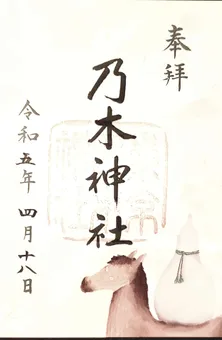 奉拝
乃木神社
令和五年 四月十八日